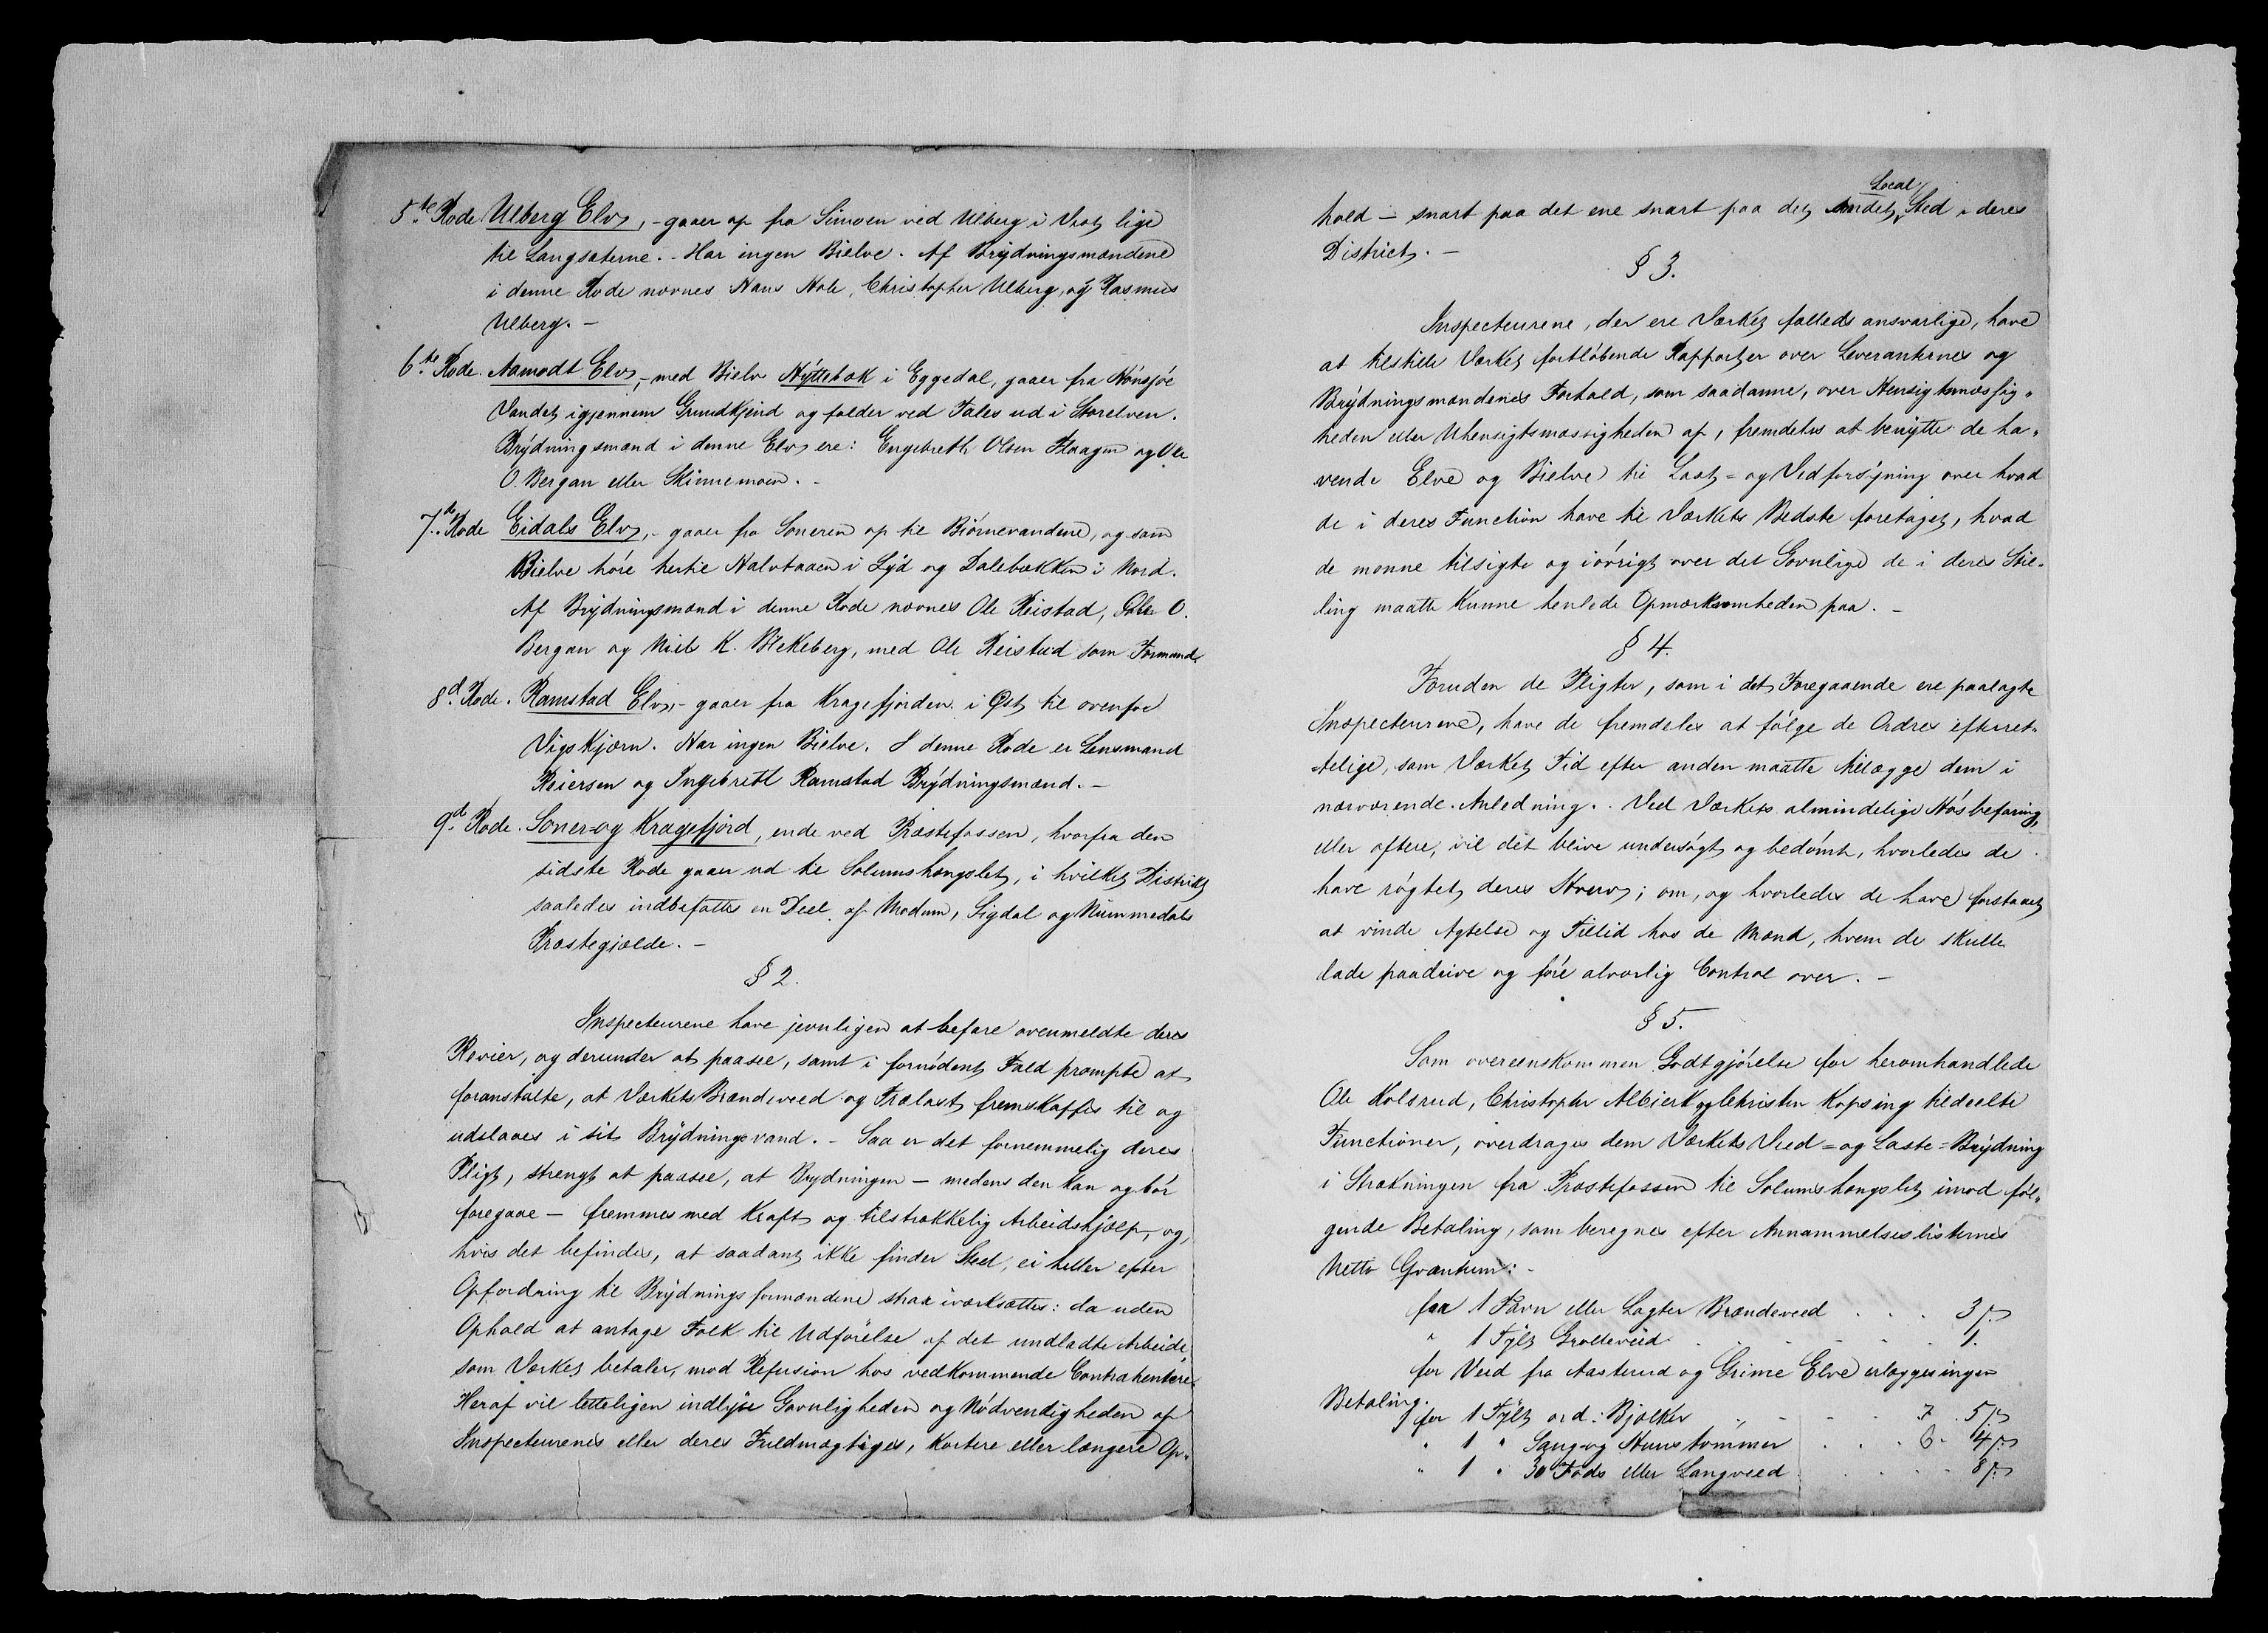 5te Rode Ulberg Elv, - gaaer op fra Simoen ved Ulberg i Vest lige
til Langsæterne. - Har ingen Bielve. Af Brýdningsmændene
i denne Rode nævnes Hans Hole, Christopher Ulberg, og Rasmus
Ulberg. -
6te Rode. Aamodt Elv, - med Bielv Nýttebæk i Eggedal, gaaer fra Hönsjöe
Vandet igjennem Grundkjend og falder ved Tales ud i Storelven.
Brýdningsmænd i denne Elv ere: Engebreth Olsen Plaagen og Ole
O. Bergan eller Skinnemoen. -
7de Rode Eidals Elv, - gaaer fra Soneren op til Biörnevandene, og som
Bielve höre hertil Halvtaaen i Sýd og Dalebækken i Nord.
Af Brýdningsmænd i denne Rode nævnes Ole Reistad, Ole O.
Bergan og Niels K. Blekeberg, med Ole Reistad som Formand.
8d Rode. Ramstad Elv, - gaaer fra Kragefjorden i Öst til ovenfor
Vigs Kjærn. Har ingen Bielve. I denne Rode er Lensmand
Reiersen og Ingebrett Ramstad Brýdningsmænd. -
9de Rode. Soner- og Kragefjord, ende ved Præstefossen, hvorfra den
sidste Rode gaaer ud til Solumshængslet, i hvilket District
saaledes indbefattes en Deel af Modum, Sigdal og Nummedals
Præstegjælde. -
§ 2.
Inspecteurene have jevnligen at befare ovenmeldte deres
Revier, og derunder at paasee, samt i fornödent Fald prompte at
foranstalte, at Værkets Brændeveed og Trælast fremskaffes til og
udslaaes i sit Brýdningsvand. - Saa er det fornemmelig deres
Pligt, strengt at paasee, at Brydningen - medens den kan og bör
foregaae - fremmes med Kraft og tilstrækkelig Arbeidshjælp, og,
hvis det befindes, at saadant ikke finder Sted, ei heller efter
Opfordring til Brýdningsformændene strax iværksættes: da uden
Ophold at antage Folk til Udförelse af det undladte Arbeide
som Værket betaler, mod Refusion hos vedkommende Contrahentere.
Heraf vil letteligen indlýse Gavnligheden og Nödvendigheden af
Inspecteurenes eller deres Fuldmægtiges, kortere eller længere Op-
hold - snart paa det ene snart paa det andet Local Sted i deres
District. -
§ 3.
Inspecteurene, der ere Værket fælleds ansvarlige, have
at tilstille Værket fortlöbende Rapporter over Leveranternes og
Brýdningsmændenes Forhold, som saadanne, over Hensigtsmæssig-
heden eller Uhensigtsmæssigheden af, fremdeles at benýtte de ha-
vende Elve og Bielve til Last- og Vedforsýning over hvad
de i deres Function have til Værkets Bedste foretaget, hvad
de monne tilsigte og iövrigt over det Gavnlige de i deres Stil-
ling maatte kunne henlede Opmærksomheden paa. -
§ 4.
Foruden de Pligter, som i det Foregaaende ere paalagte
Inspecteurene, have de fremdeles at fölge de Ordres efterret-
telige, som Værket Tid efter anden maatte tillægge dem i
nærværende Anledning. - Ved Værkets almindelige Höstbefaring,
eller oftere, vil det blive undersögt og bedömt, hvorledes de
have rögtet deres Hverv; om, og hvorledes de have forstaaet
at vinde Agtelse og Tillid hos de Mænd, hvem de skulle
lade paadrive og före alvorlig Control over. -
§ 5.
Som overeenskommen Godtgjörelse for heromhandlede
Ole Kolsrud, Christopher Albjerk og Christen Kopsing tildeelte
Functioner, overdrages dem Værkets Veed- og Laste-Brýdning
i Strækningen fra Præstefossen til Solumshængslet imod föl-
gende Betaling, som beregnes efter Annammelseslisternes
Netto Qvantum: -
for 1 Favn eller Lagter Brændeveed . . . 3 ſ
" 1 Tÿlt Grolleveed . . . . . 1.
for Veed fra Aasterud og Grime Elve erlægges ingen
Betaling.
for 1 Tÿlt ord: Bjælker . . . 7. 5 ſ
" 1 " Saug- og Huustømmer . . . 6. 4 ſ
" 1 " 30 Fods eller Langveed . . . 8 ſ